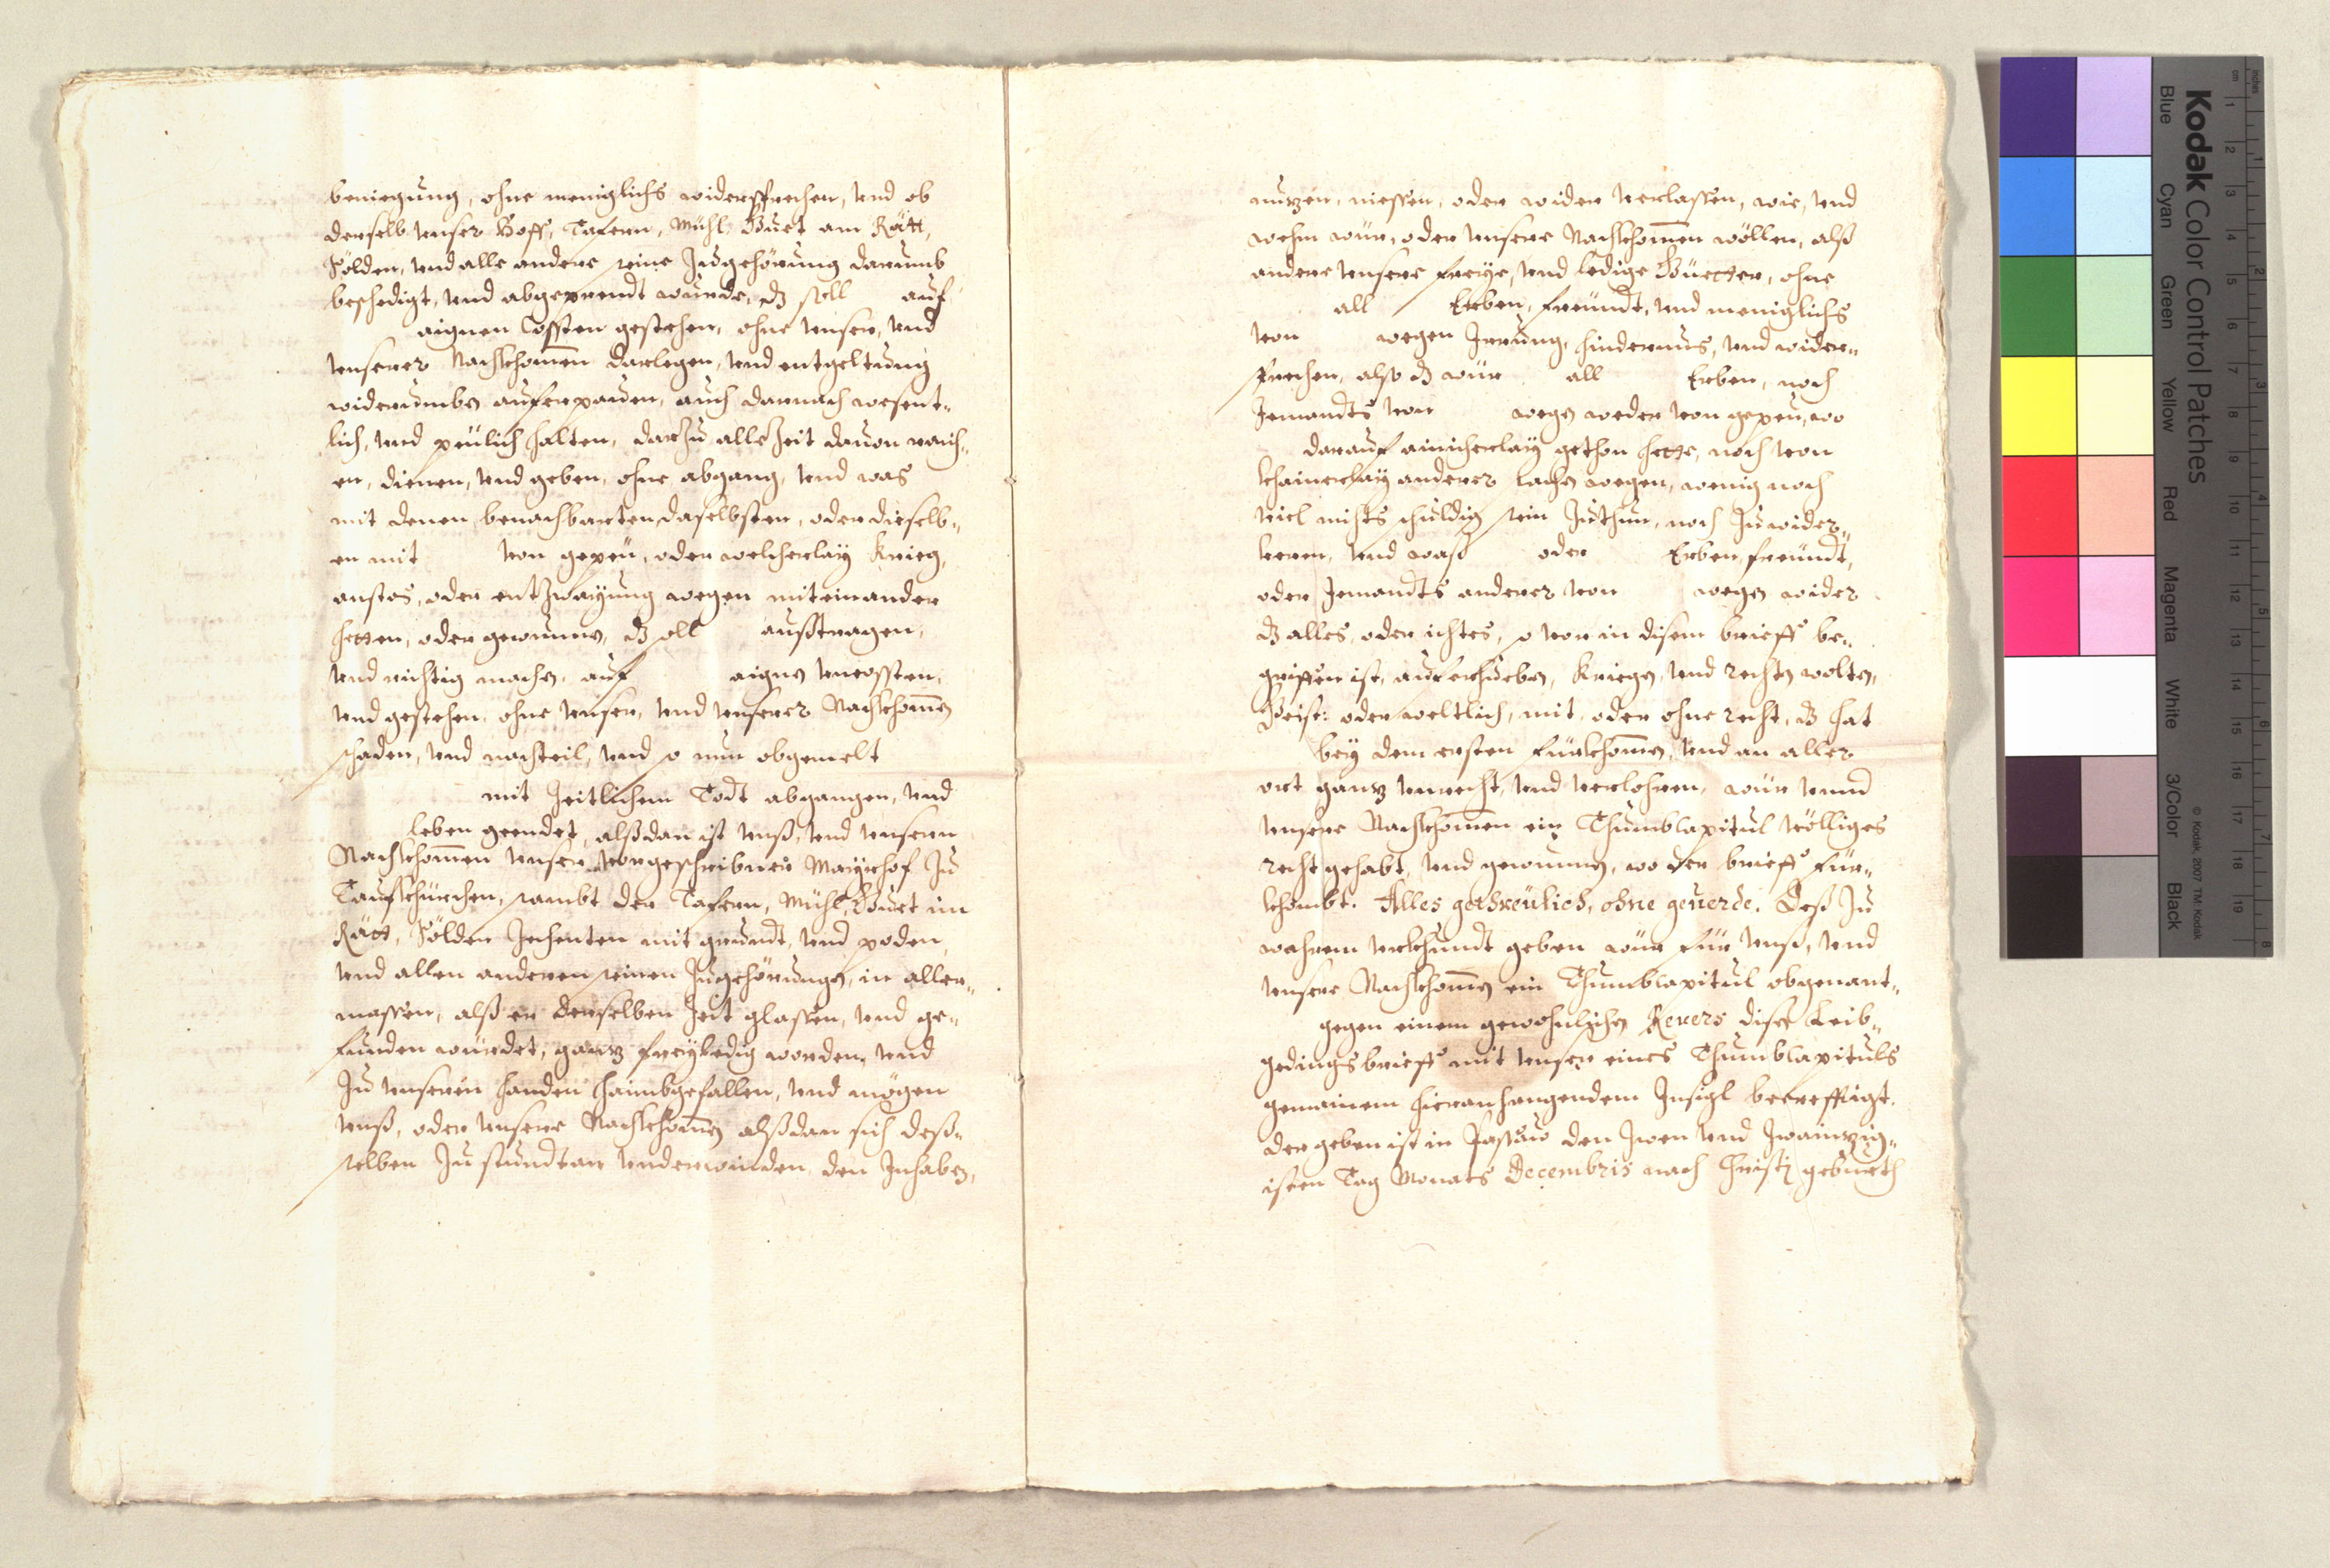 beniegung, ohne meniglichs widersprechen, vnd ob
derselb vnser Hoff, Tafern, Mühl, Guet am Rätt,
Sölden, vnd alle andere seine Zugehörung darumb
beschedigt, vnd abgeprendt wurde, dz soll auf
aignen Cossten gestehen, ohne vnser, vnd
vnserer Nachkhom̄en darlegen, vnd entgeltung
widerumben auferpauen, auch darnach wesent-
lich, vnd peulich halten, darzu alle Zeit dauon raich-
en, dienen, vnd geben, ohne abgang, vnd was
mit denen benachbarten daselbsten, oder dieselb-
en mit von gepeu, oder welcherlay Krieg,
anstos, oder entzwayung wegen miteinander
hetten, oder gewunnen, dz soll außtragen,
vnd richtig machen, auf aignen vncossten,
vnd gestehen, ohne vnser, vnd vnserer Nachkhom̄en
schaden, vnd nachteil, vnd so nun obgemelt
mit Zeitlichem Todt abgangen, vnd
leben geendet, alßdan ist vnß, vnd vnseren
Nachkhom̄en vnser vorgeschribner Mayrhof Zu
Taufkhürchen, sambt der Tafern, Mühl, Guet im
Rätt, Sölden Zechenten mit grundt, vnd poden,
vnd allen anderen seinen Zugehörungen, in aller-
massen, alß er derselben Zeit glassen, vnd ge-
funden würdet, ganz frey ledig worden, vnd
Zu vnseren handen haimbgefallen, vnd mögen
vnß, oder vnsere Nachkhom̄en alßdan sich deß-
selben Zu stundtan vnderwinden, den Inhaben,
nuzen, niessen, oder wider verlassen, wie, vnd
wehm wür, oder vnsere Nachkhom̄en wöllen, alß
andere vnsere freye, vnd ledige Güetter, ohne
all Erben, freundt, vnd meniglichs
von wegen Irrung, hindernus, vnd wider-
sprechen, also dz wür all Erben, noch
Jemandts von wegen weder von gepeu, wo
darauf ainicherlay gethon hette, noch von
khainerlay anderer sachen wegen, wenig noch
viel nichts schuldig sein Zuthun, noch Zuwider-
keren, vnd waß oder Erben, freundt,
oder Jemandts anderer von wegen wider
dz alles, oder ichtes, so vor in disem brieff be-
griffen ist, auferhueben, Kriegen, vnd rechten wolten,
Geist: oder weltlich, mit, oder ohne recht, dz hat
bey dem ersten fürkhom̄en, vnd an aller
ort ganz vnrecht, vnd verlohren, wür vnnd
vnsere Nachkhom̄en ein Thumbkapitul völliges
recht gehabt, vnd gewunnen, wo der brieff für-
khombt. Alles gethreulich, ohne geuerde. Deß Zu
wahrem vrkhundt geben wür für vnß, vnd
vnsere Nachkhom̄en ein Thumbkapitul obgenant-
gegen einem gewohnlichen Reuers disen Leib-
gedingsbrieff mit vnser eines Thumbkapituls
gemainem hieranhangendem Insigl becrefftigt.
der geben ist in Passau den Zwen vnd Zwainzig-
isten Tag Monats Decembris nach Christi geburth
Kodak Color Control Patches
Blue Cyan Green Yellow Red Magenta White 3/Color Black
© Kodak, 2007 TM: Kodak